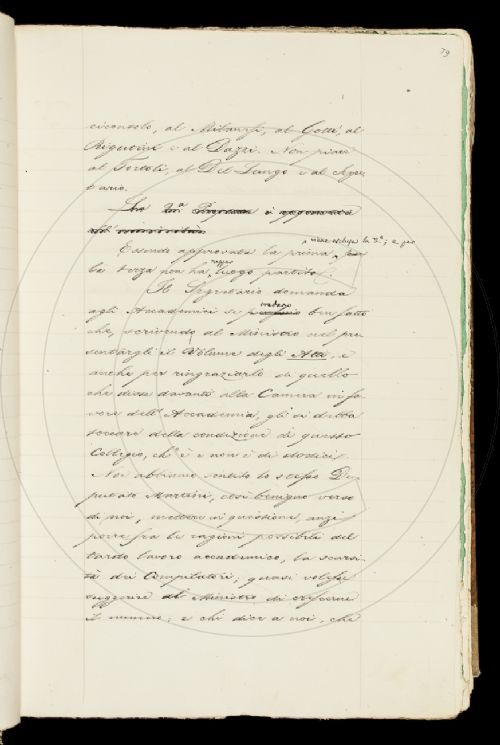 79
ciconsolo, al Milanesi, al Gotti, al
Rigutini e al Dazzi. Non piace
al Tortoli, al Del Lungo e al Segre-
tario.
La 2ª Proposta è approvata
all'
viene esclusa la 2ª; e per
Essendo approvata la prima,
la terza poi ha luogo partito.
Il Segretario domanda
credano
agli Accademici se ben fatto
che, scrivendo al Ministro nel pre-
sentargli il Volume degli Atti, e
anche per ringraziarlo di quello
che disse davanti alla Camera in fa-
vore dell'Accademia, gli si debba
toccare della condizione di questo
Collegio, ch'è e non è di dodici.
Noi abbiamo sentito lo stesso De-
putato Martini, così benigno verso
di noi, mettere in questione, anzi
porre fra le ragioni possibili del
tardo lavoro accademico, la scarsi-
tà dei Compilatori, quasi volesse
suggerire al Ministro di crescerne
il numero; e chi dice a noi, che